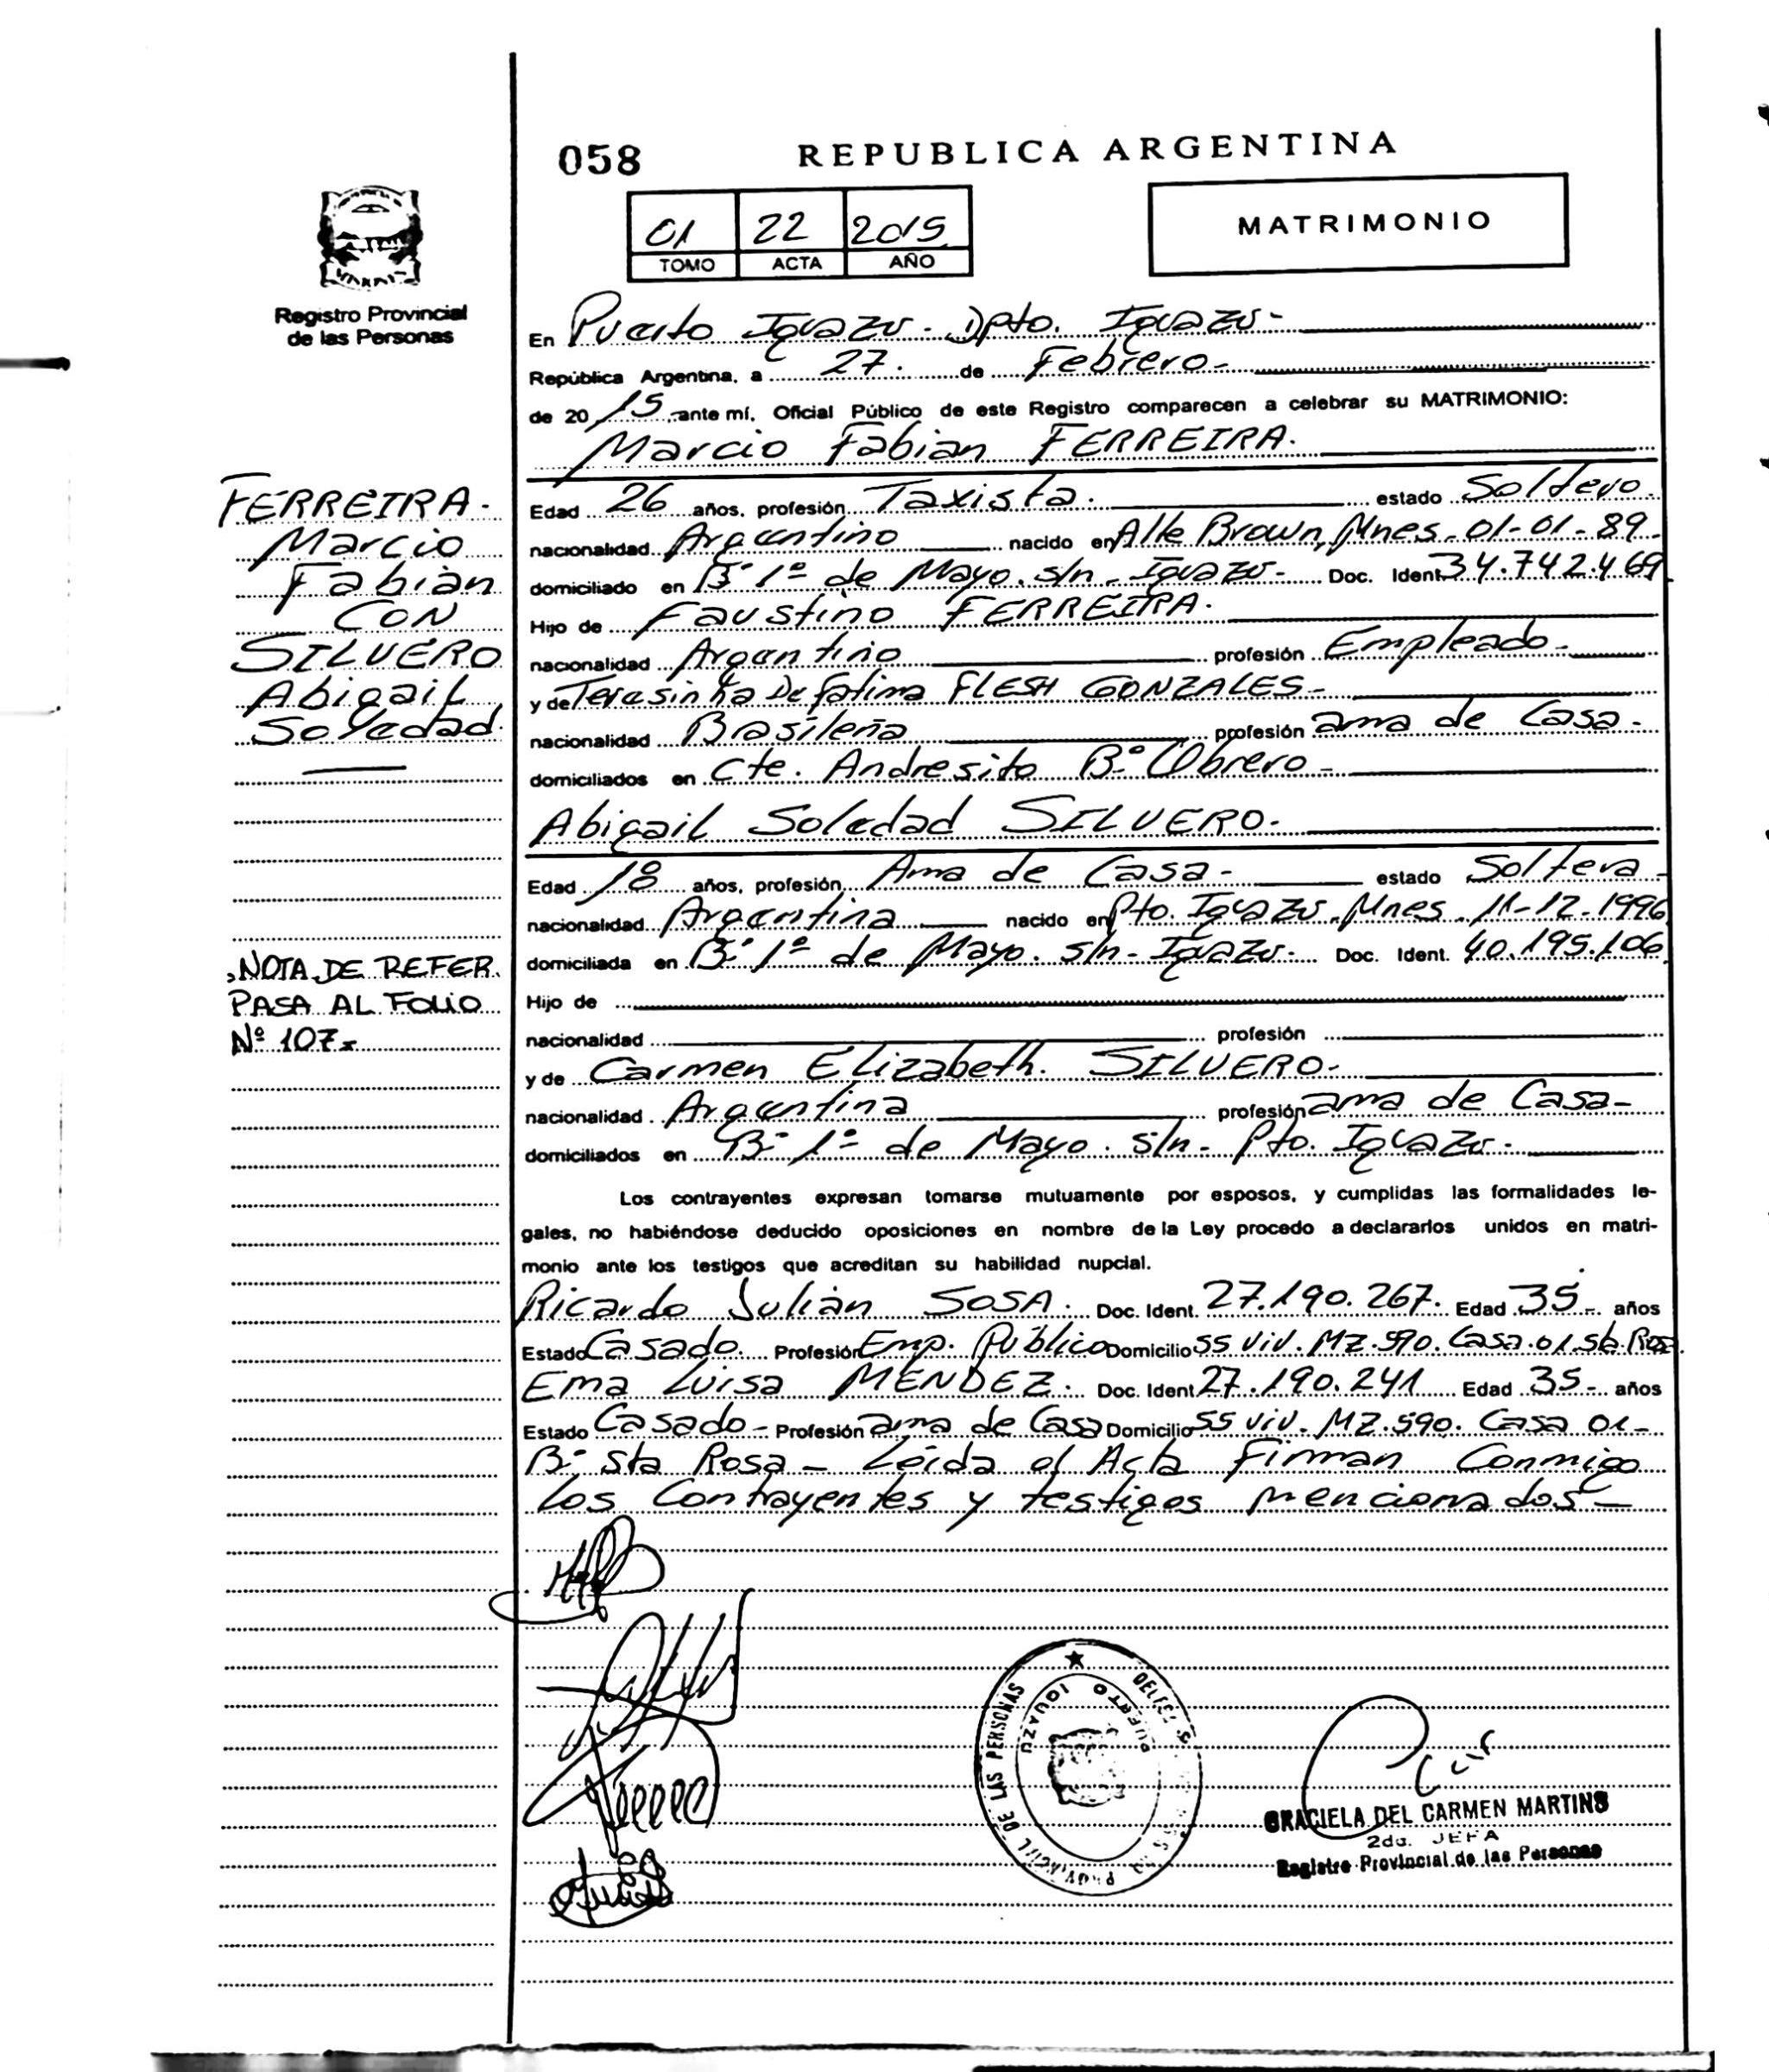 058 REPUBLICA ARGENTINA
01 22 2015
TOMO ACTA AÑO
MATRIMONIO
Registro Provincial
de las Personas
En Puerto Iguazu - Dpto. Iguazu-
República Argentina, a 27. de Febrero-
de 20 15 ante mí, Oficial Público de este Registro comparecen a celebrar su MATRIMONIO:
Marcio Fabian FERREIRA.
FERREIRA-
Marcio
Fabián
CON
SILVERO
Abigail
Soledad.
Edad 26 años, profesión Taxista. estado Soltero.
nacionalidad Argentino nacido en Alte Brown, Mnes. 01-01-89-
domiciliado en B° 1º de Mayo. s/n - Iguazu- Doc. Ident 34.742.469
Hijo de Faustino FERREIRA.
nacionalidad Argentino profesión Empleado-
y de Teresinha De Fatima FLESH GONZALES-
nacionalidad Brasileña profesión ama de Casa-
domiciliados en Cte. Andresito B° Obrero-
Abigail Soledad SILVERO.
Edad 18 años, profesión Ama de Casa- estado Soltera-
nacionalidad Argentina nacido en Pto. Iguazu, Mnes. 11-12-1996
domiciliada en B° 1º de Mayo. s/n - Iguazu- Doc. Ident. 40.195.106
NOTA DE REFER.
PASA AL FOLIO
Nº 107-
Hijo de
nacionalidad profesión
y de Carmen Elizabeth. SILVERO-
nacionalidad Argentina profesión ama de Casa-
domiciliados en B° 1º de Mayo. s/n - Pto. Iguazu-
Los contrayentes expresan tomarse mutuamente por esposos, y cumplidas las formalidades le-
gales, no habiéndose deducido oposiciones en nombre de la Ley procedo a declararlos unidos en matri-
monio ante los testigos que acreditan su habilidad nupcial.
Ricardo Julián SOSA. Doc. Ident. 27.190.267. Edad 35- años
Estado Casado. Profesión Emp. Público Domicilio 55 viv. MZ.590. Casa.01.Sta Rosa
Ema Luisa MENDEZ. Doc. Ident 27.190.241 Edad 35- años
Estado Casado- Profesión ama de Casa Domicilio 55 viv. MZ.590. Casa 01-
B° Sta Rosa - Leída el Acta Firman Conmigo
los Contrayentes y testigos mencionados-
PUERTO IGUAZU
PROVINCIAL DE LAS PERSONAS
GRACIELA DEL CARMEN MARTINS
2da. JEFA
Registro Provincial de las Personas